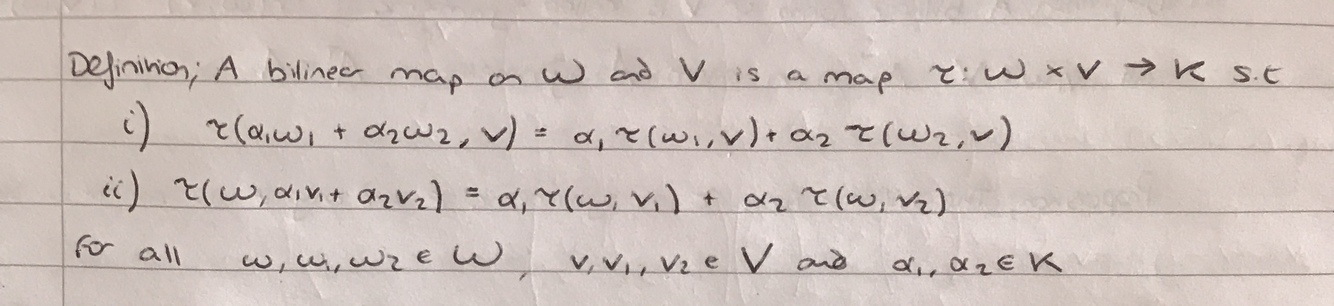 Definition; A bilinear map on W and V is a map τ: W × V → K s.t
i) τ(α₁w₁ + α₂w₂, v) = α₁ τ(w₁, v) + α₂ τ(w₂, v)
ii) τ(w, α₁v₁ + α₂v₂) = α₁ τ(w, v₁) + α₂ τ(w, v₂)
For all w, w₁, w₂ ∈ W, v, v₁, v₂ ∈ V and α₁, α₂ ∈ K